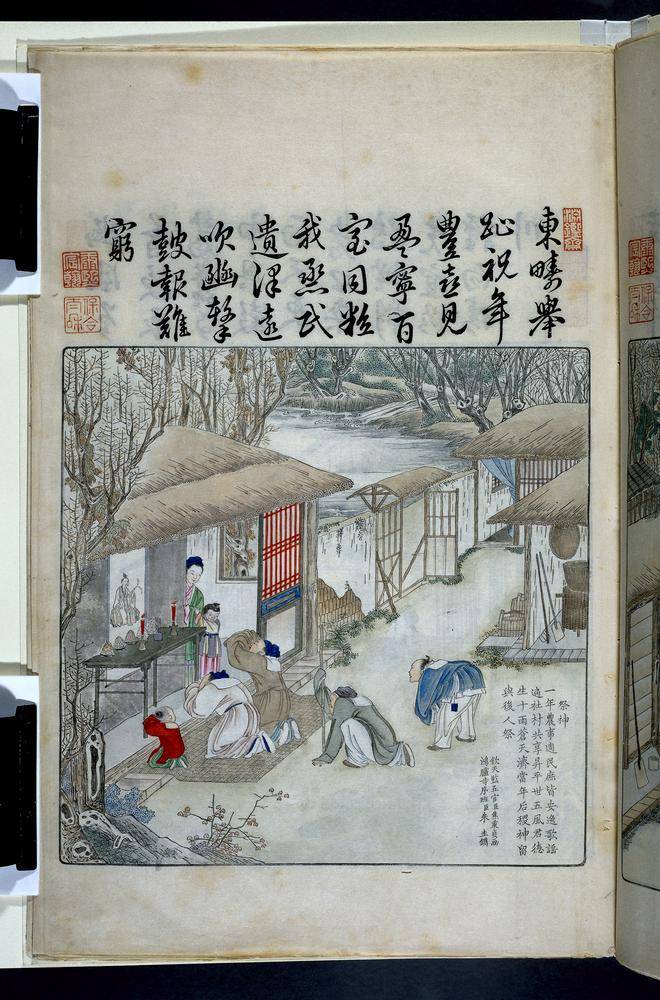 淵鑒齋
東疇舉
趾祝年
豐喜見
盈寧百
室同粒
我烝民
遺澤遠
吹豳擊
鼓報難
窮
康熙宸翰
保合太和
祭神
一年農事週民庶皆安逸歌謡
遍社村共享昇平世五風君德
生十雨蒼天濟當年后稷神留
與後人祭
欽天監五官臣焦秉貞畫
鴻臚寺序班臣朱圭鐫